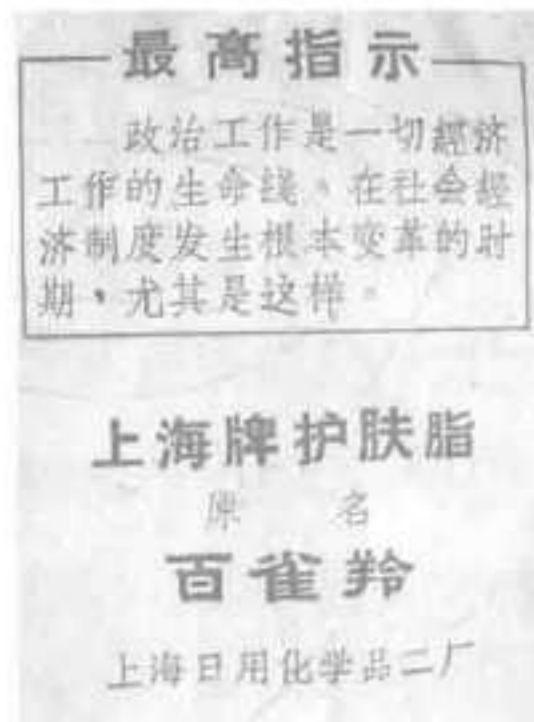 最高指示
政治工作是一切經济
工作的生命线。在社会經
济制度发生根本变革的时
期，尤其是这样。
上海牌护肤脂
原名
百雀羚
上海日用化学品二厂